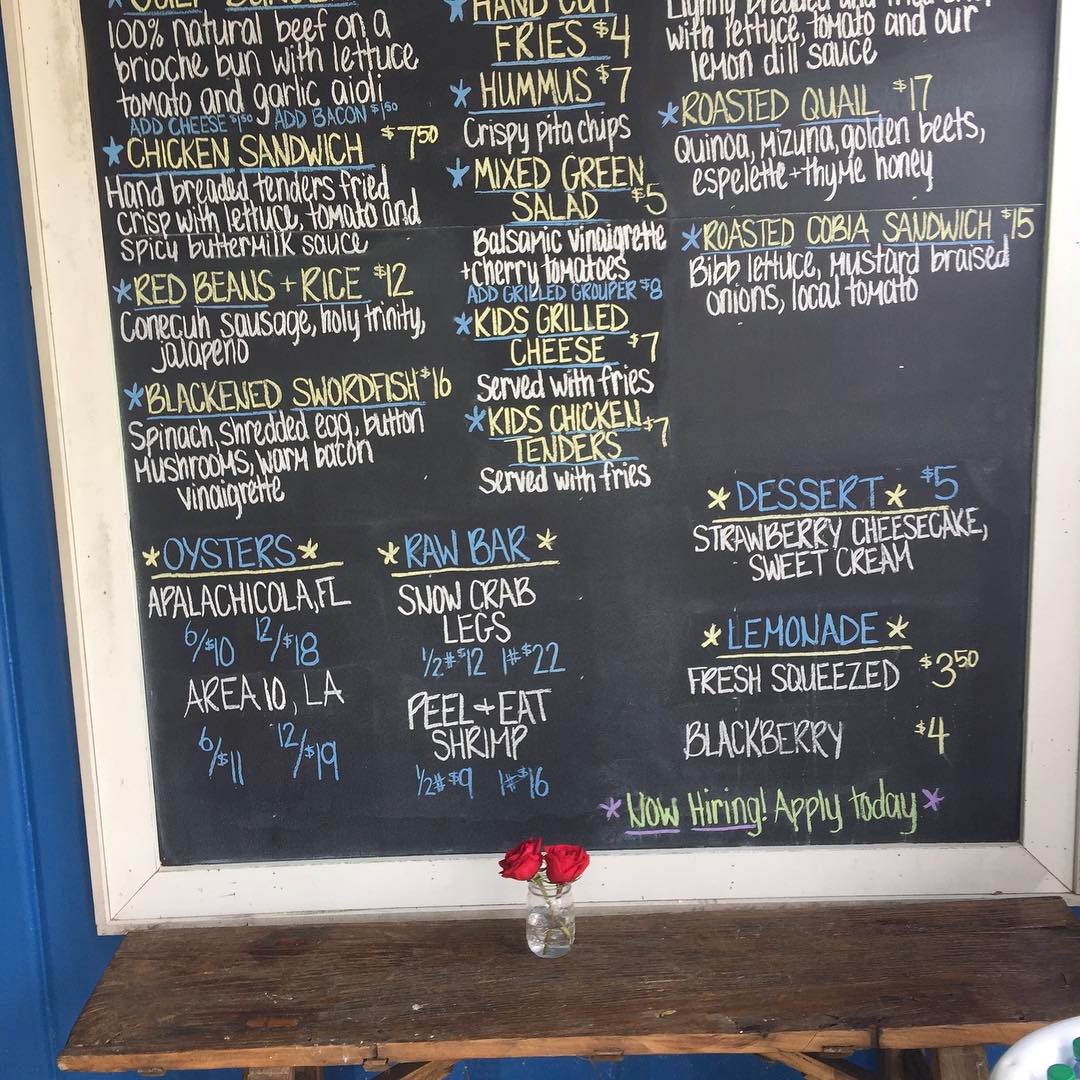 100% natural beef on a
brioche bun with lettuce
tomato and garlic aioli
ADD CHEESE $1.50 ADD BACON $1.50
*CHICKEN SANDWICH $7.50
Hand breaded tenders fried
crisp with lettuce, tomato and
spicy buttermilk sauce
*RED BEANS + RICE $12
Conecuh sausage, holy trinity,
jalapeno
*BLACKENED SWORDFISH $16
Spinach, shredded egg, button
mushrooms, warm bacon
vinaigrette
HAND CUT
FRIES $4
*HUMMUS $7
Crispy pita chips
*MIXED GREEN
SALAD $5
Balsamic vinaigrette
+cherry tomatoes
ADD GRILLED GROUPER $8
*KIDS GRILLED
CHEESE $7
Served with fries
*KIDS CHICKEN $7
TENDERS
Served with fries
Lightly breaded and fried
with lettuce, tomato and our
lemon dill sauce
*ROASTED QUAIL $17
Quinoa, Mizuna, golden beets,
espelette + thyme honey
*ROASTED COBIA SANDWICH $15
Bibb lettuce, mustard braised
onions, local tomato
*OYSTERS*
APALACHICOLA, FL
6/$10 12/$18
AREA 10, LA
6/$11 12/$19
*RAW BAR*
SNOW CRAB
LEGS
1/2# $12 1# $22
PEEL + EAT
SHRIMP
1/2# $9 1# $16
*DESSERT* $5
STRAWBERRY CHEESECAKE,
SWEET CREAM
*LEMONADE*
FRESH SQUEEZED $3.50
BLACKBERRY $4
*Now Hiring! Apply today*